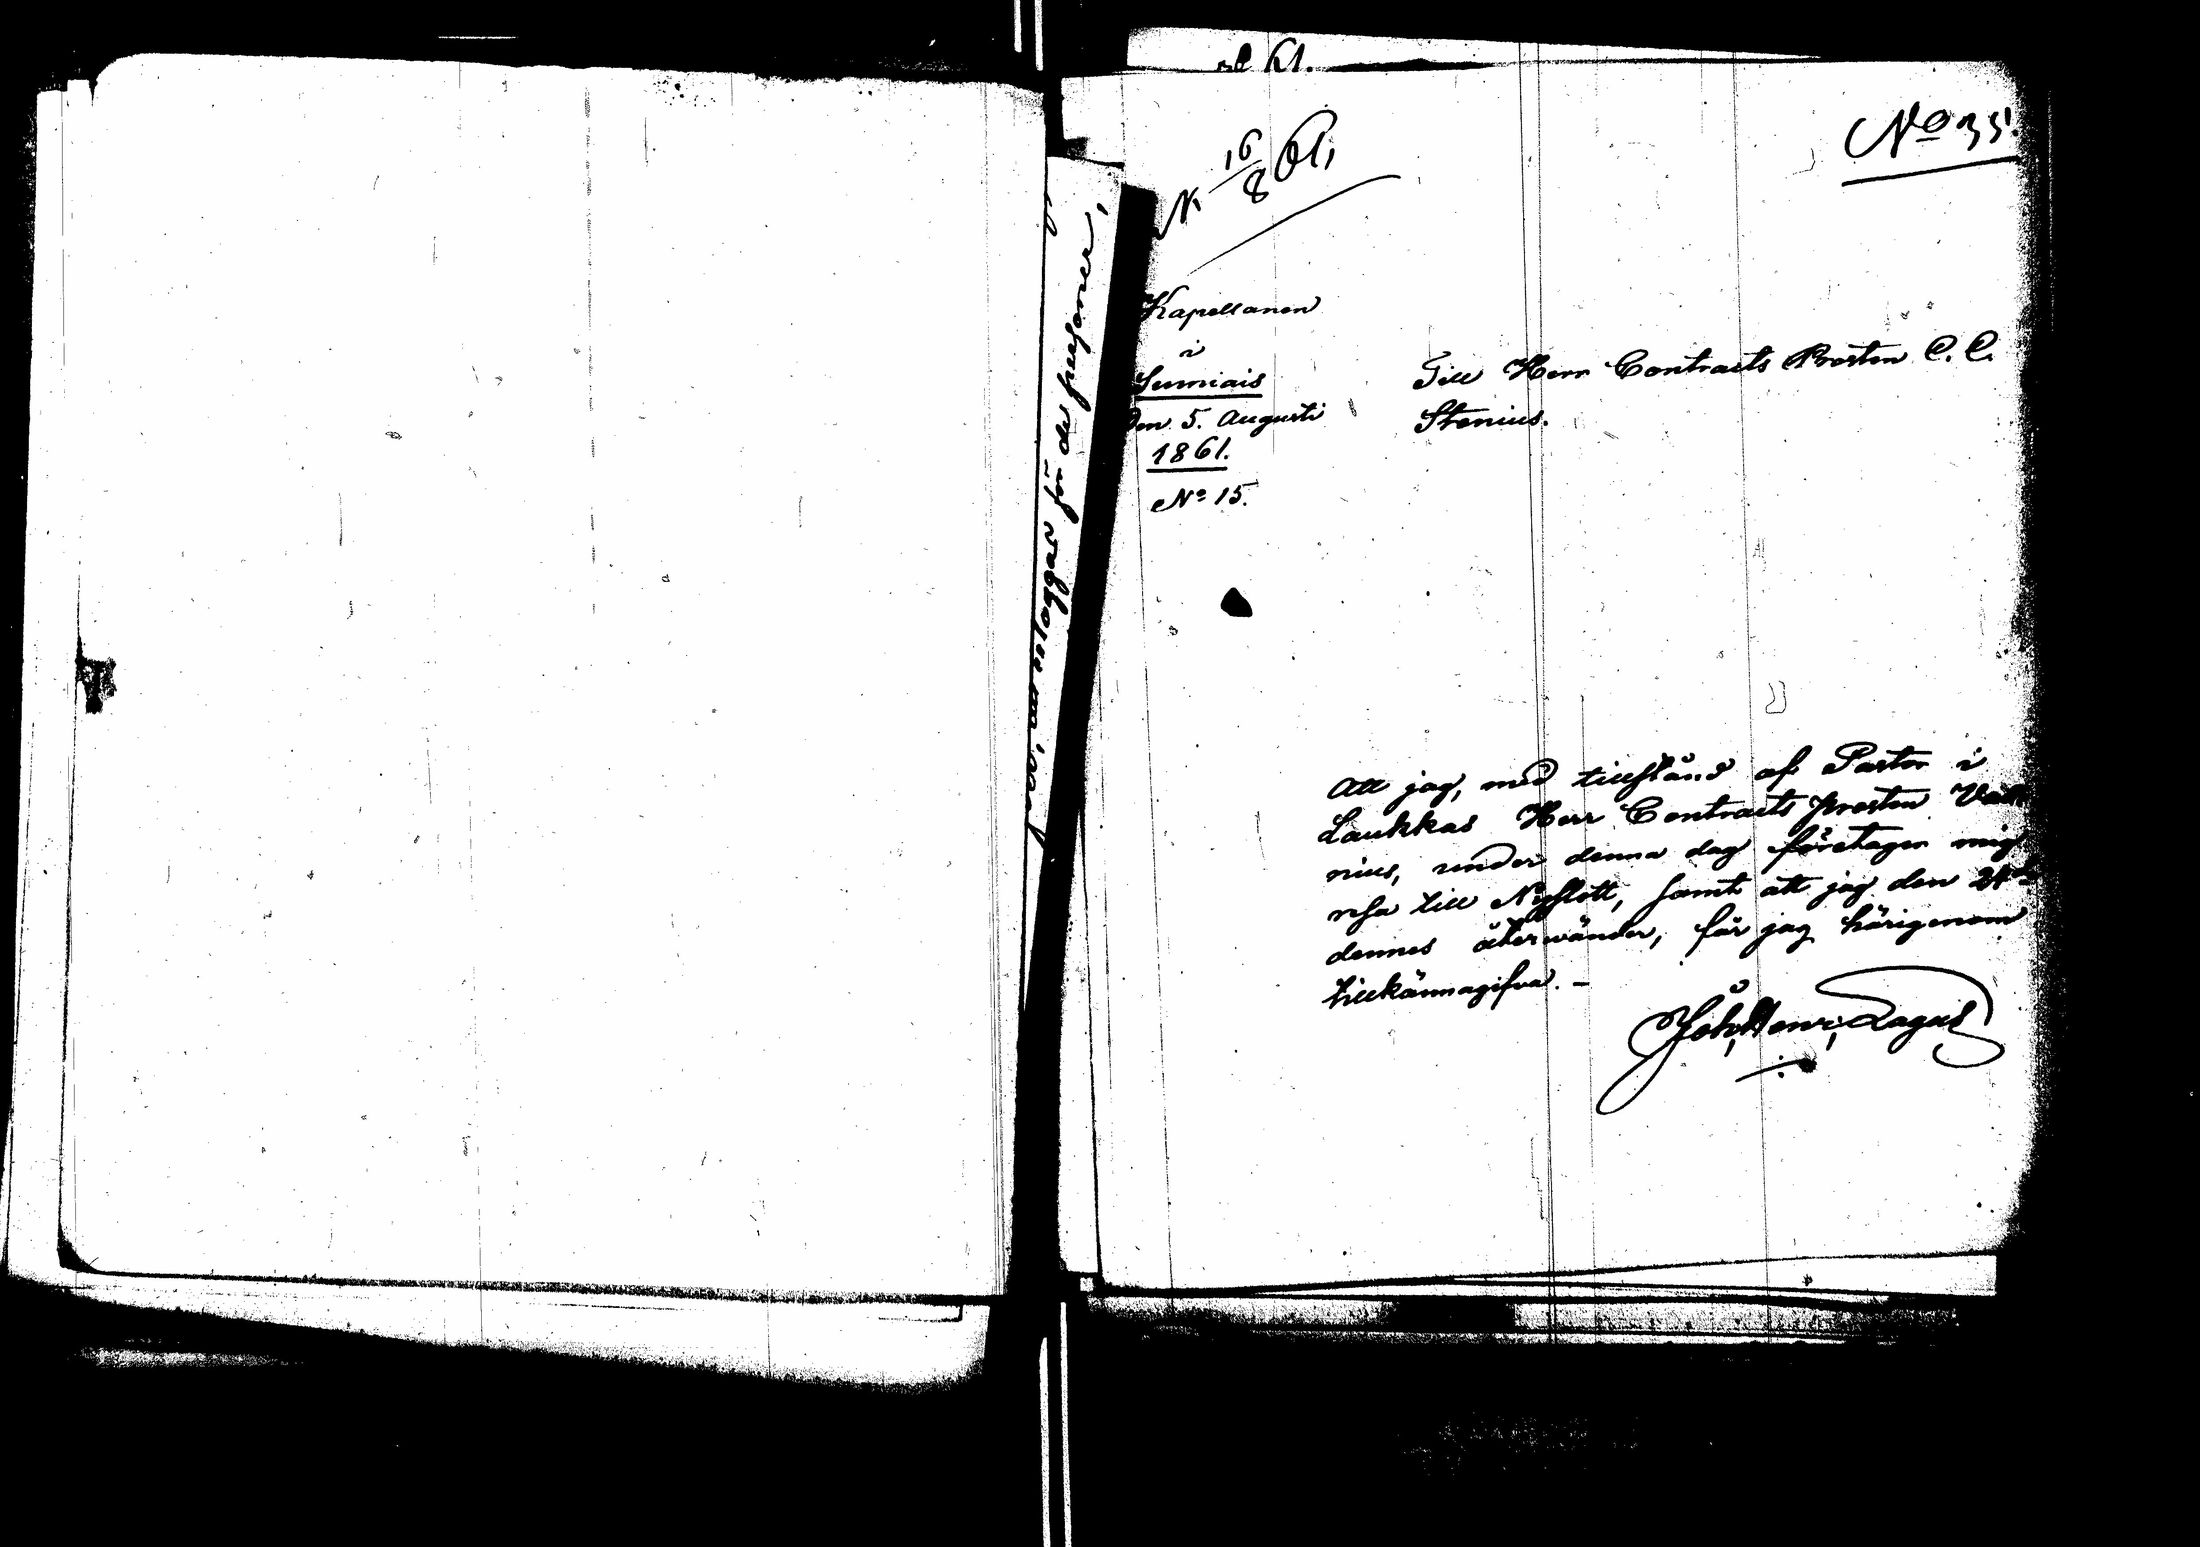 61.
No 35.
16/8 61,
Kapellanen
i
Sumiais
den 5. Augusti
1861.
No 15.
Till Herr Contracts Prosten C. C.
Stenius.
Att jag, med tillstånd af Pastor i
Laukkas Herr Contracts Prosten
nius, under denna dag företagen mig
resa till Nyslott, samt att jag den 24de
dennes återwänder, får jag härigenom
tillkännagifva. –
Joh, Henr, Lagus